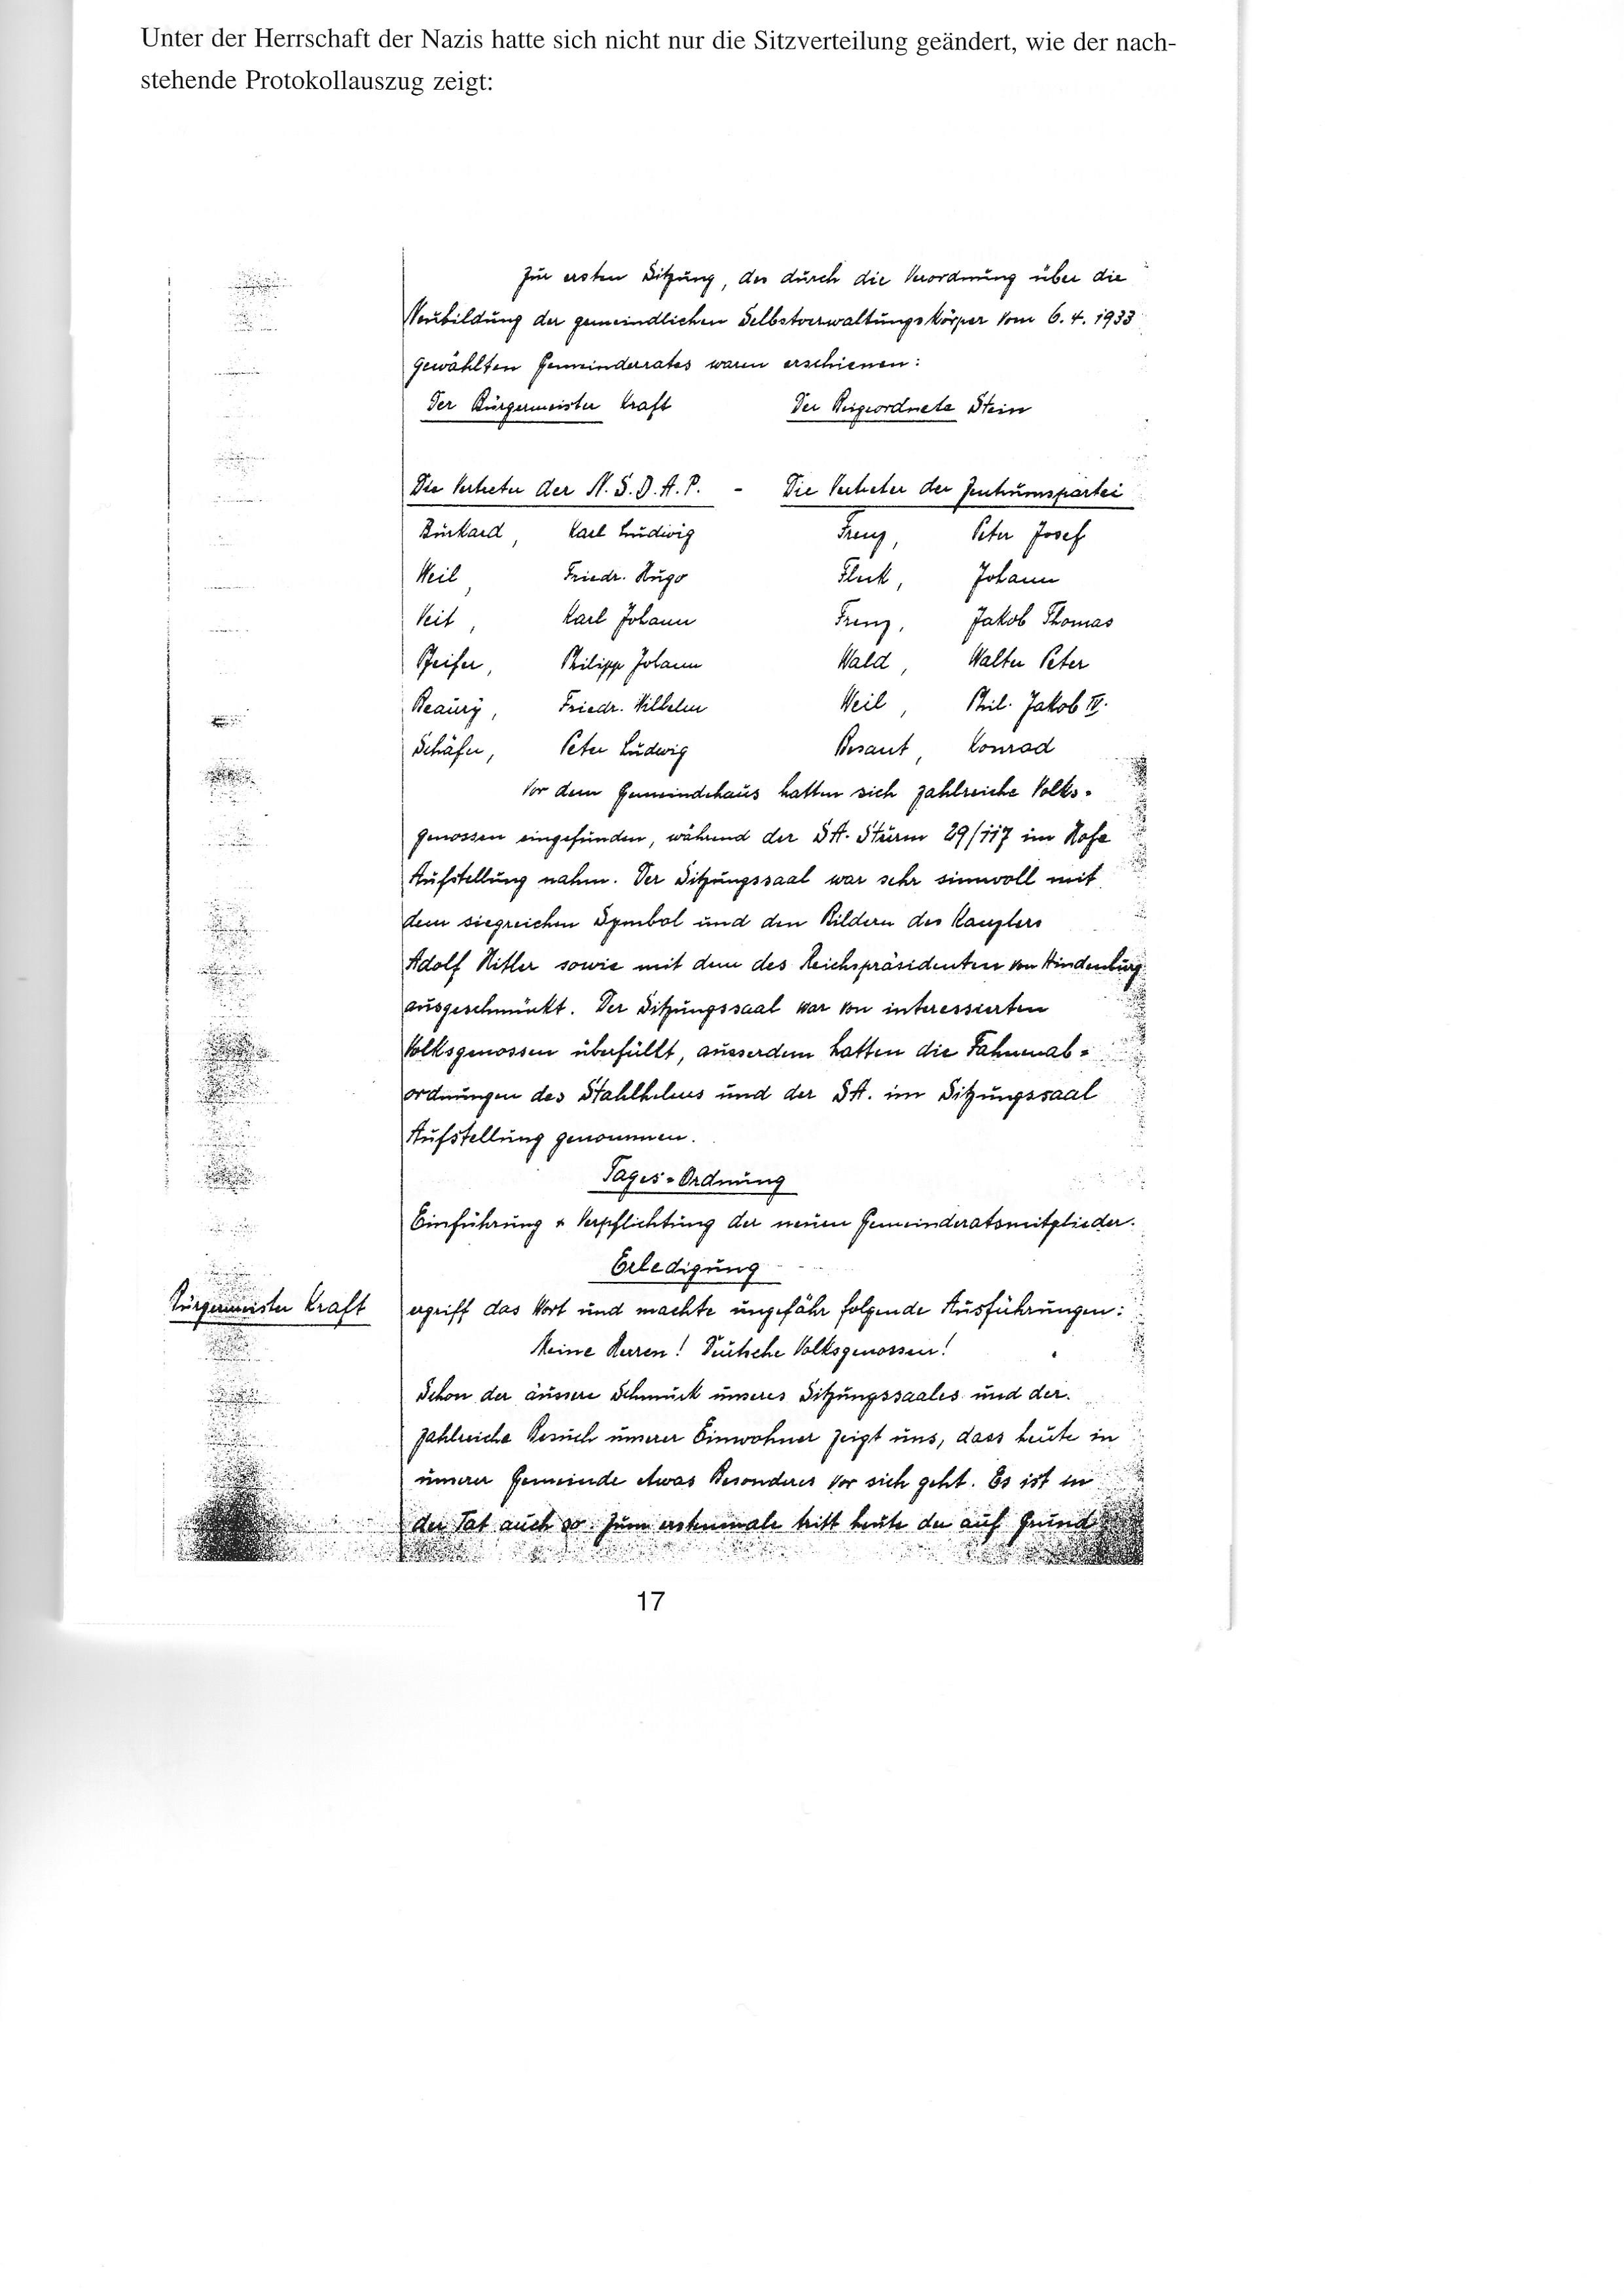 Unter der Herrschaft der Nazis hatte sich nicht nur die Sitzverteilung geändert, wie der nach-
stehende Protokollauszug zeigt:
Zur ersten Sitzung, des durch die Verordnung über die
Neubildung der gemeindlichen Selbstverwaltungskörper vom 6. 4. 1933
gewählten Gemeinderates waren erschienen:
Der Bürgermeister Kraft Der Beigeordnete Stein
Die Vertreter der N. S. D. A. P. - Die Vertreter der Zentrumspartei
Burkard, Karl Ludwig Frenz, Peter Josef
Weil, Friedr. Hugo Fluck, Johann
Veit, Karl Johann Frenz, Jakob Thomas
Pfeifer, Philipp Johann Wald, Walter Peter
Beaury, Friedr. Wilhelm Weil, Phil. Jakob IV.
Schäfer, Peter Ludwig Besant, Konrad
Vor dem Gemeindehaus hatten sich zahlreiche Volks-
genossen eingefunden, während der SA. Sturm 29/117 im Hofe
Aufstellung nahm. Der Sitzungssaal war sehr sinnvoll mit
dem siegreichen Symbol und den Bildern des Kanzlers
Adolf Hitler sowie mit dem des Reichspräsidenten von Hindenburg
ausgeschmückt. Der Sitzungssaal war von interessierten
Volksgenossen überfüllt, ausserdem hatten die Fahnenab=
ordnungen des Stahlhelms und der SA. im Sitzungssaal
Aufstellung genommen.
Tages=Ordnung
Einführung & Verpflichtung der neuen Gemeinderatsmitglieder.
Erledigung
Bürgermeister Kraft ergriff das Wort und machte ungefähr folgende Ausführungen:
Meine Herren! Deutsche Volksgenossen!
Schon der äussere Schmuck unseres Sitzungssaales und der
zahlreiche Besuch unserer Einwohner zeigt uns, dass heute in
unserer Gemeinde etwas Besonderes vor sich geht. Es ist in
der Tat auch so. Zum erstenmale tritt heute der auf Grund
17